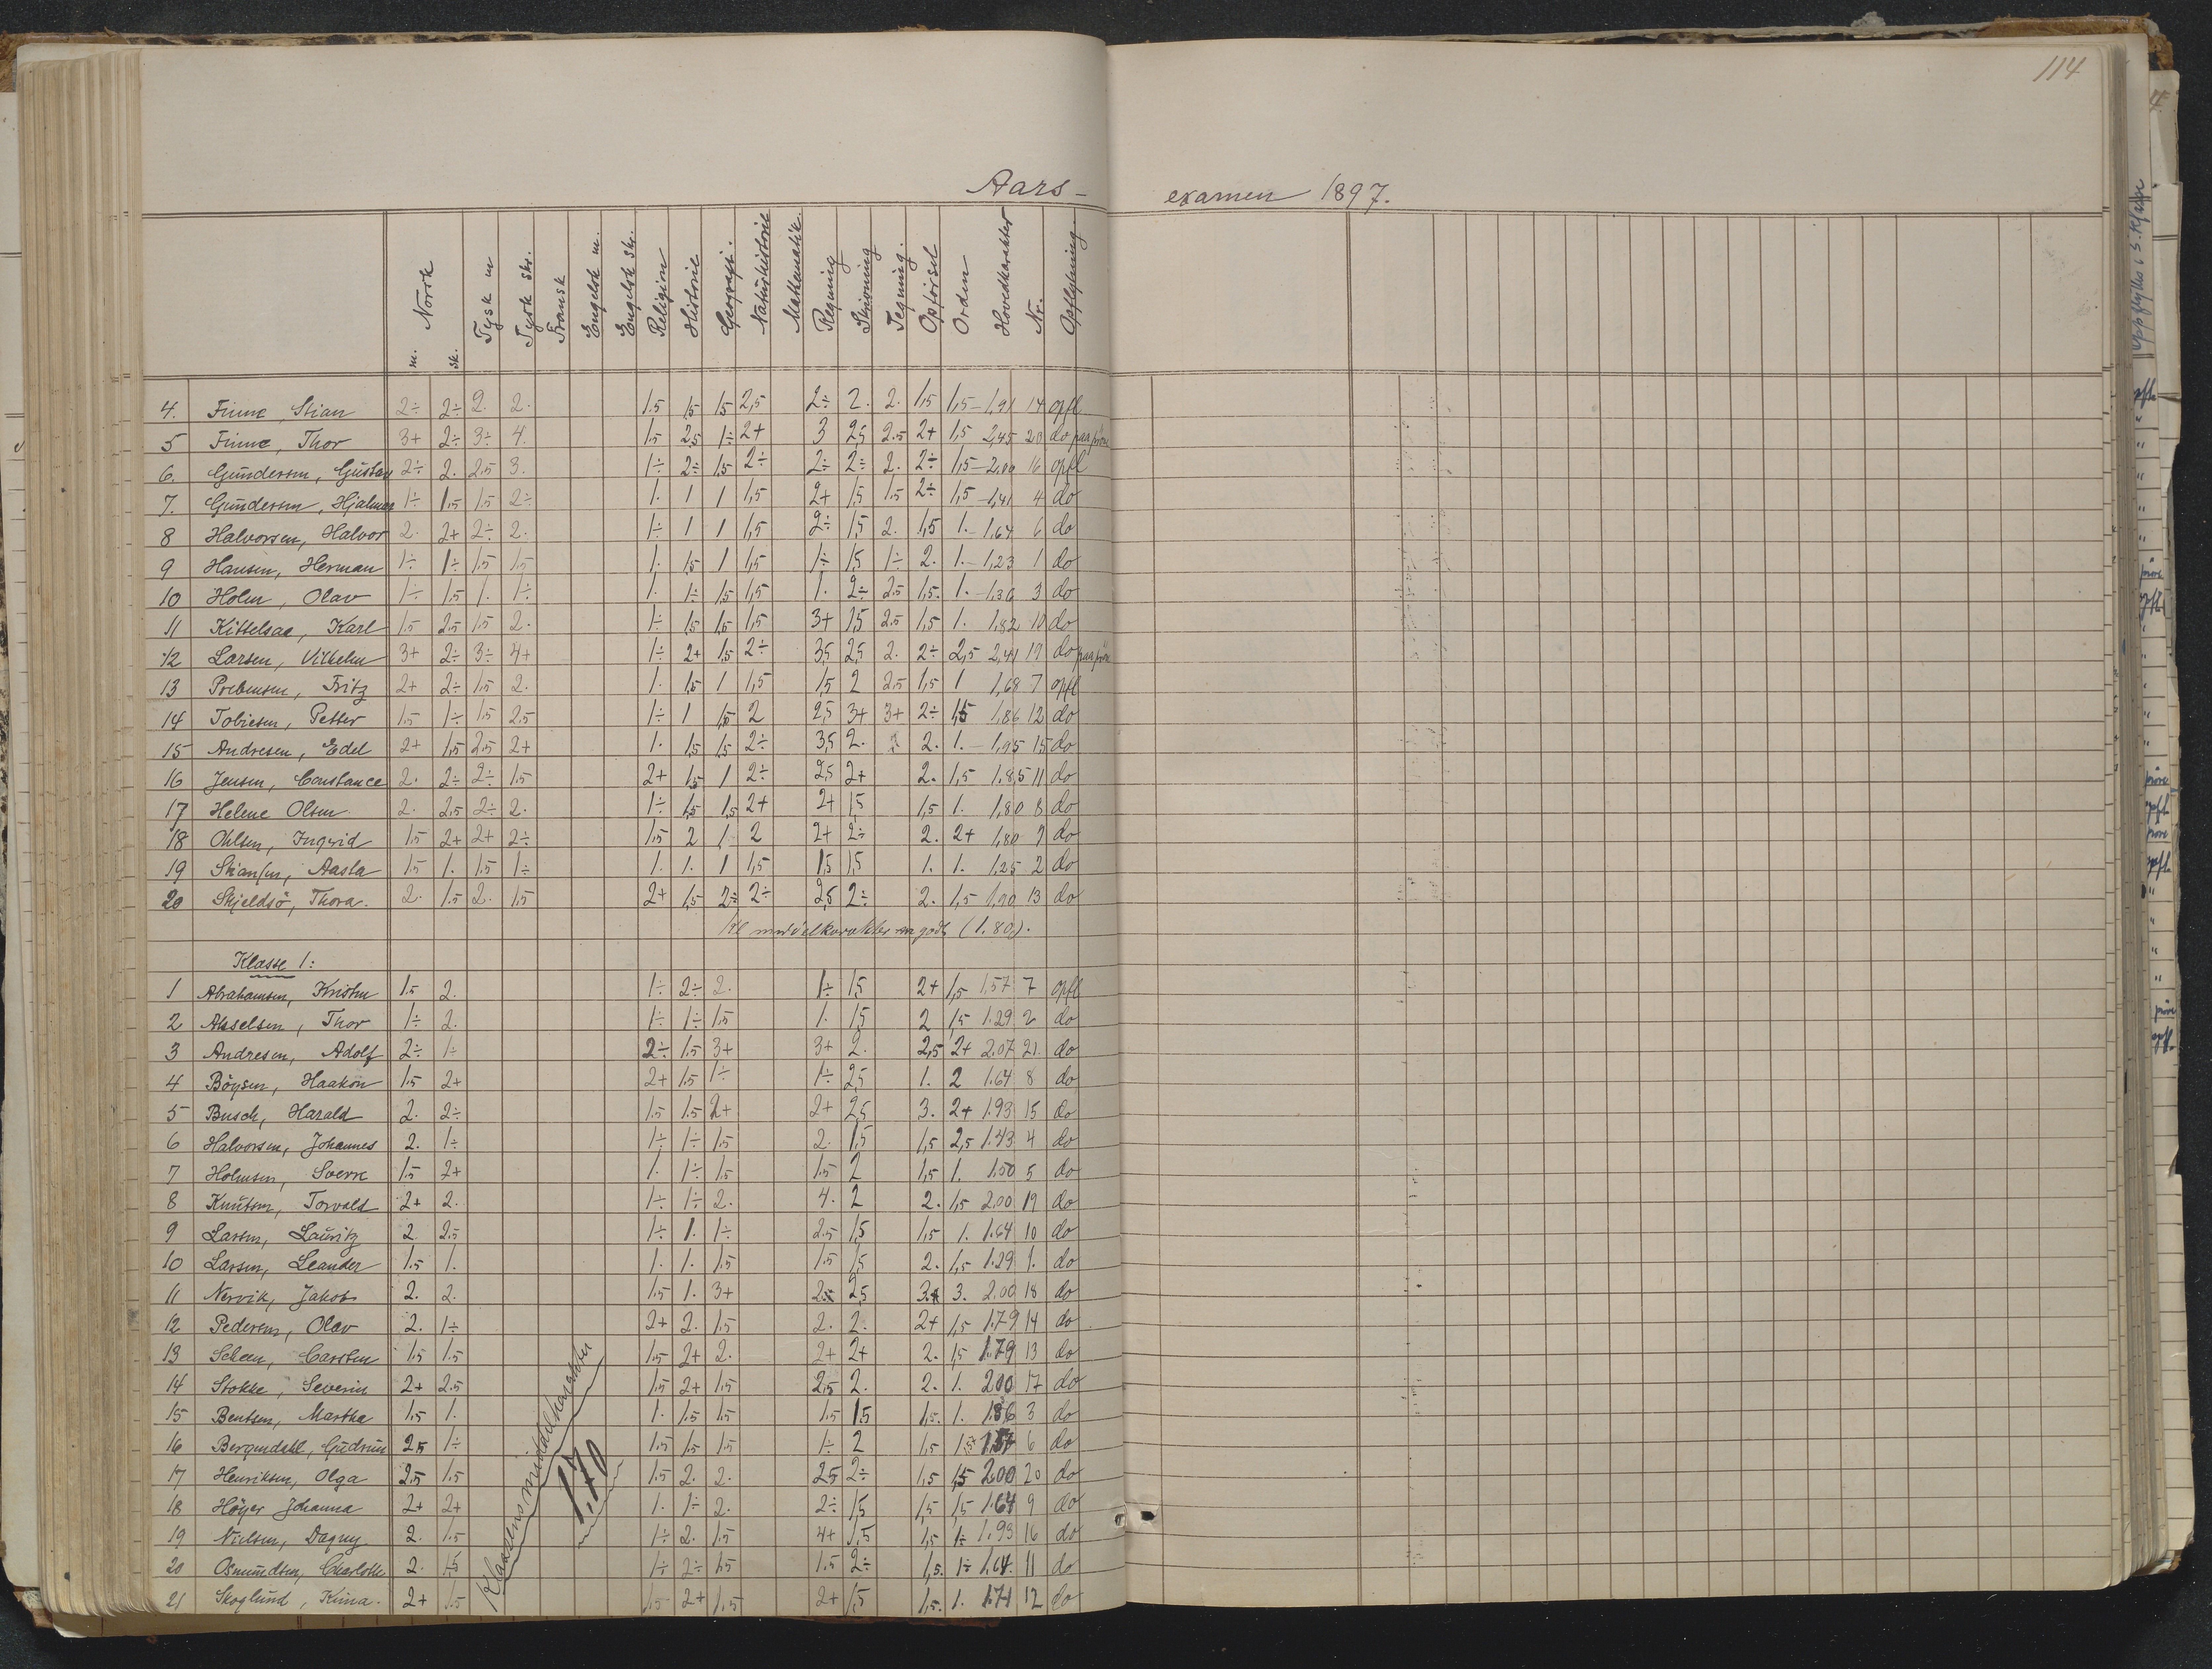 114
Aars- examen 1897.
Norsk m. sk. Tysk m Tysk skr. Fransk Engelsk m. Engelsk skr. Religion Historie Geografi. Naturhistorie Mathematik. Regning Skrivning Tegning. Opförsel Orden Hovedkarakter Nr. Opflytning
4. Finne, Stian 2÷ 2÷ 2. 2. 1.5 1,5 1,5 2,5 2÷ 2. 2. 1,5 1,5 – 1,91 14 opfl
5 Finne, Thor 3+ 2÷ 3÷ 4. 1.5 2,5 1÷ 2+ 3 2,5 2.5 2+ 1,5 2,45 20 do paa prøve
6. Gundersen, Gustav 2÷ 2. 2.5 3. 1÷ 2÷ 1,5 2÷ 2÷ 2÷ 2. 2÷ 1,5 – 2,00 16 opfl
7. Gundersen, Hjalmar 1÷ 1.5 1.5 2÷ 1. 1 1 1,5 2+ 1,5 1.5 2÷ 1,5 – 1,41 4 do
8 Halvorsen, Halvor 2. 2+ 2÷ 2. 1÷ 1 1 1,5 2÷ 1,5 2. 1,5 1. – 1,64 6 do
9 Hansen, Herman 1÷ 1÷ 1.5 1.5 1. 1,5 1 1,5 1÷ 1,5 1÷ 2. 1. – 1,23 1 do
10 Holm, Olav 1÷ 1.5 1. 1÷ 1. 1÷ 1,5 1,5 1. 2÷ 2.5 1,5. 1. – 1,36 3 do
11 Kittelsaa, Karl 1.5 2.5 1.5 2. 1÷ 1,5 1,5 1,5 3+ 1,5 2.5 1,5 1. 1,82 10 do
12 Larsen, Vilhelm 3+ 2÷ 3÷ 4+ 1÷ 2+ 1,5 2÷ 3,5 2,5 2. 2÷ 2,5 2,41 19 do paa prøve
13 Prebensen, Fritz 2+ 2÷ 1.5 2. 1. 1,5 1 1,5 1,5 2 2.5 1,5 1 1,68 7 opfl
14 Tobiesen, Petter 1.5 1÷ 1.5 2.5 1÷ 1 1,5 2 2,5 3+ 3+ 2÷ 1,5 1,86 12 do
15 Andresen, Edel 2+ 1,5 2.5 2+ 1. 1,5 1,5 2÷ 3,5 2. 2. 1. – 1,95 15 do
16 Jensen, Constance 2. 2÷ 2÷ 1.5 2+ 1,5 1 2÷ 2,5 2+ 2. 1,5 1.85 11 do
17 Helene Olsen 2. 2.5 2÷ 2. 1÷ 1,5 1,5 2+ 2+ 1,5 1,5 1. 1,80 8 do
18 Ohlsen, Ingrid 1.5 2+ 2+ 2÷ 1.5 2 1. 2 2+ 2÷ 2. 2+ 1,80 9 do
19 Skansen, Aasta 1.5 1. 1.5 1÷ 1. 1. 1 1,5 1,5 1,5 1. 1. 1,25 2 do
20 Skjeldsö, Thora. 2. 1.5 2. 1.5 2+ 1,5 2÷ 2÷ 2,5 2÷ 2. 1,5 1,90 13 do
Kl middelkarakter godt (1.80).
Klasse 1:
1 Abrahamsen, Kristen 1.5 2. 1÷ 2÷ 2. 1÷ 1,5 2+ 1,5 1,57 7 opfl
2 Akselsen, Thor 1÷ 2. 1÷ 1÷ 1.5 1. 1,5 2 1,5 1.29 2 do
3 Andresen, Adolf 2÷ 1÷ 2÷ 1.5 3+ 3+ 2. 2,5 2+ 2.07 21. do
4 Böysen, Haakon 1.5 2+ 2+ 1.5 1÷ 1÷ 2,5 1. 2 1.64 8 do
5 Busch, Harald 2. 2÷ 1.5 1.5 2+ 2+ 2,5 3. 2+ 1.93 15 do
6 Halvorsen, Johannes 2. 1÷ 1÷ 1÷ 1.5 2. 1,5 1,5 2,5 1.43 4 do
7 Holmsen, Sverre 1.5 2+ 1. 1÷ 1.5 1.5 2 1,5 1. 1.50 5 do
8 Knutsen, Torvald 2+ 2. 1÷ 1÷ 2. 4. 2 2. 1,5 2.00 19 do
9 Larsen, Lauritz 2. 2.5 1÷ 1. 1÷ 2.5 1,5 1,5 1. 1.64 10 do
10 Larsen, Leander 1.5 1. 1. 1. 1.5 1.5 1,5 2. 1,5 1.29 1. do
11 Nervik, Jakob 2. 2. 1.5 1. 3+ 2÷ 2,5 3. 2.00 18 do
12 Pedersen, Olav 2. 1÷ 2+ 2. 1.5 2. 2. 2+ 1,5 1.79 14 do
13 Scheen, Carsten 1.5 1.5 1.5 2+ 2. 2+ 2+ 2. 1,5 1.79 13 do
14 Stokke, Severin 2+ 2.5 1.5 2+ 1.5 2,5 2. 2. 1. 2.00 17 do
15 Bentsen, Martha 1.5 1. 1. 1.5 1.5 1.5 1.5 1,5. 1. 3 do
16 Bergendahl, Gudrun 2.5 1÷ 1.5 1.5 1.5 1÷ 2 1,5 6 do
17 Henriksen, Olga 2.5 1.5 1.5 2. 2. 2.5 2÷ 1,5 1,5 2.00 20 do
18 Höyer Johanna 2+ 2+ 1. 1÷ 2. 2÷ 1,5 1,5 1,5 1.64 9 do
19 Nielsen, Dagny 2. 1.5 1÷ 2. 1.5 4+ 1,5 1,5 1÷ 1.93 16 do
20 Osmundsen, Charlotte 2. 1.5 1÷ 2÷ 1.5 1.5 2÷ 1,5. 1÷ 1.64. 11 do
21 Skoglund, Kima. 2+ 1.5 1.5 2+ 1.5 2+ 1,5 1,5. 1. 1.71 12 do
Klassens middelkarakter
1,70